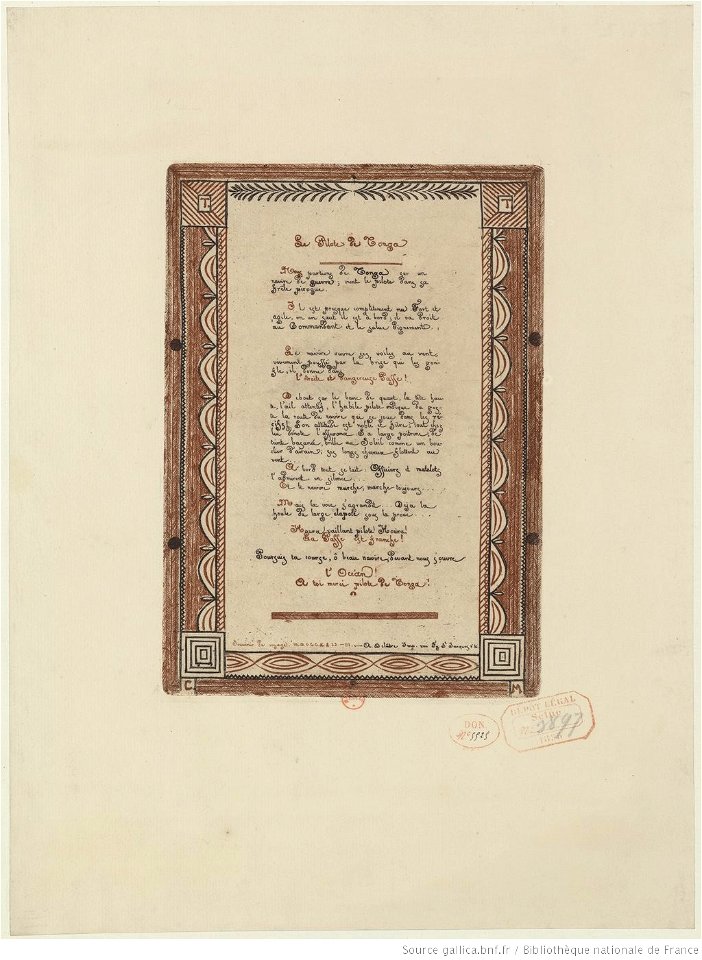 T. T
Le Pilote de Tonga
Nous partions de Tonga sur un
navire de guerre; vient le pilote dans sa
frêle pirogue.
Il est presque complètement nu Fort et
agile, en un saut il est à bord, il va droit
au Commandant et le salue dignement.
Le navire ouvre ses voiles au vent,
vivement poussé par la brise qui les gon-
fle, il donne dans
l'étroite et dangereuse Passe!
Debout sur le banc de quart, la tête hau-
te, l'œil attentif, l'habile pilote indique du ges-
te la route du navire qui se joue dans les ré-
cifs. Son attitude est noble et fière; tout chez
lui dénote l'assurance. Sa large poitrine, de
teinte basané, brille au Soleil comme un bou-
clier d'airain; ses longs cheveux flottent au
vent.
A bord tout se tait Officiers et matelots
l'admirent en silence
Et le navire marche, marche toujours
Mais la voie s'agrandit... Déjà la
houle du large clapote sous la proue....
Houra, vaillant pilote! Houra!
La Passe est franche!
Poursuis ta course, ô beau navire, devant nous s'ouvre
l'Océan!
A toi merci pilote de Tonga!
Souvenir de voyages. A. Delâtre Imp.
C. M
DON. N° 5525
DÉPÔT LÉGAL
Seine
N° 3897
Source gallica.bnf.fr / Bibliothèque nationale de France